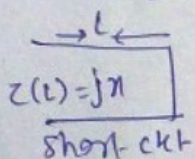 l
Z(l)=jx
Short-ckt